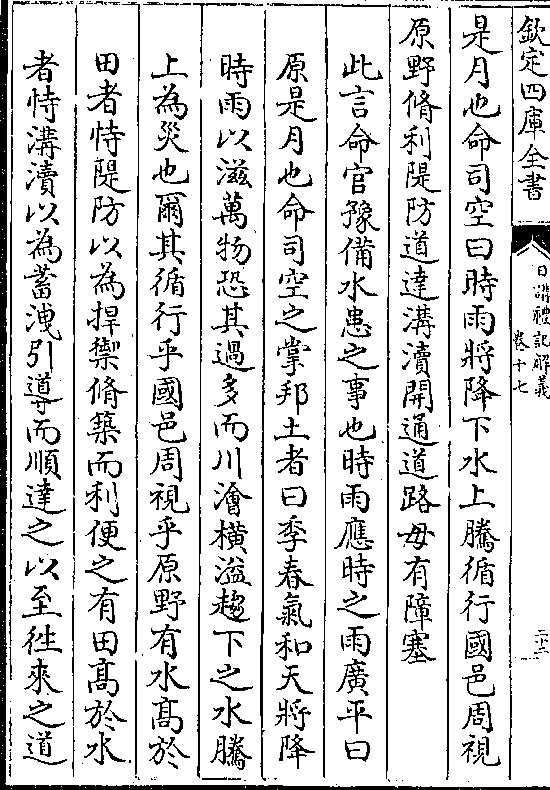 欽定四庫全書
日講禮記解義
卷十七
三十二
是月也命司空曰時雨將降下水上騰循行國邑周視
原野脩利隄防道達溝瀆開通道路毋有障塞
此言命官豫備水患之事也時雨應時之雨廣平曰
原是月也命司空之掌邦土者曰季春氣和天將降
時雨以滋萬物恐其過多而川澮橫溢趨下之水騰
上為災也爾其循行乎國邑周視乎原野有水髙於
田者恃隄防以為捍禦脩築而利便之有田髙於水
者恃溝瀆以為蓄洩引導而順達之以至徃來之道